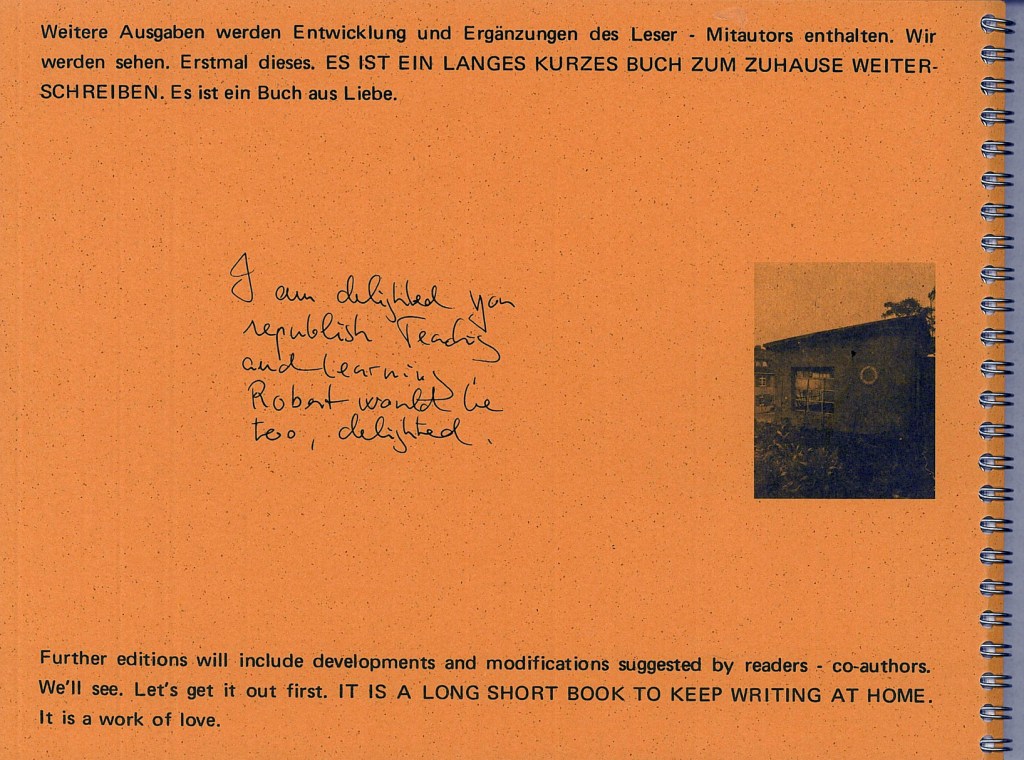 Weitere Ausgaben werden Entwicklung und Ergänzungen des Leser - Mitautors enthalten. Wir
werden sehen. Erstmal dieses. ES IST EIN LANGES KURZES BUCH ZUM ZUHAUSE WEITER-
SCHREIBEN. Es ist ein Buch aus Liebe.
I am delighted you
republish Teaching
and learning
Robert would be
too, delighted.
Further editions will include developments and modifications suggested by readers - co-authors.
We'll see. Let's get it out first. IT IS A LONG SHORT BOOK TO KEEP WRITING AT HOME.
It is a work of love.